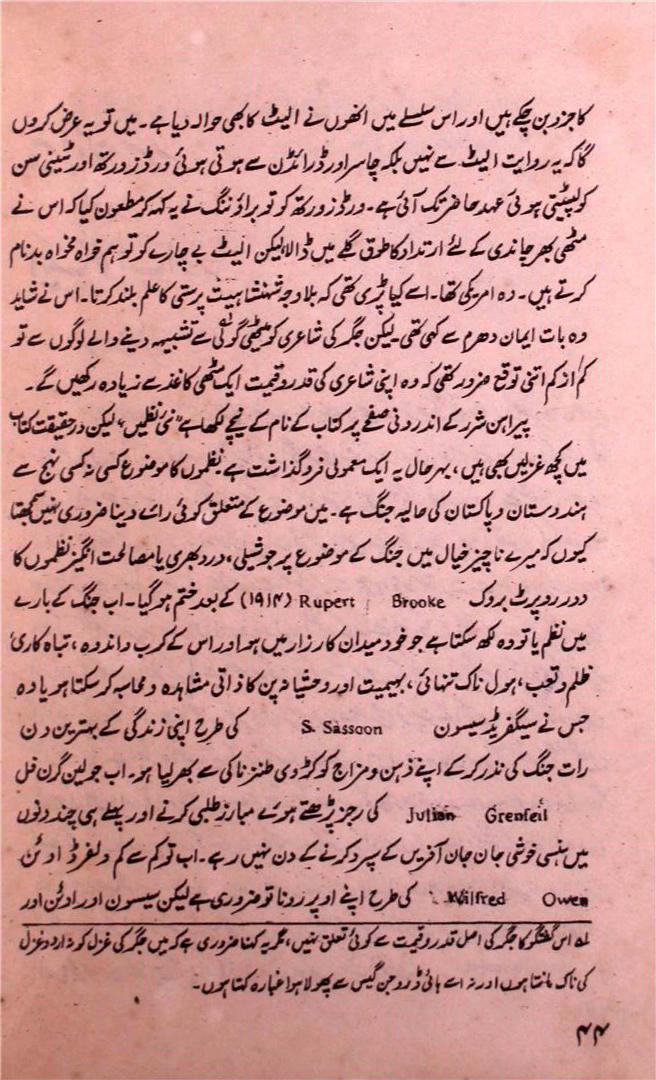 کا جزو بن چکے ہیں اور اس سلسلے میں انھوں نے الیٹ کا بھی حوالہ دیا ہے۔ میں تو یہ عرض کروں
گا کہ یہ روایت الیٹ سے نہیں بلکہ چاسر اور ڈرائڈن سے ہوتی ہوئی ورڈزورتھ اور ٹینی سن
کو لپیٹتی ہوئی عہد حاضر تک آئی ہے۔ ورڈزورتھ کو تو براؤننگ نے یہ کہہ کر مطعون کیا کہ اس نے
مٹھی بھر چاندی کے لئے ارتداد کا طوق گلے میں ڈالا، لیکن الیٹ بے چارے کو تو ہم خواہ مخواہ بدنام
کرتے ہیں۔ وہ امریکی تھا۔ اسے کیا پڑی تھی کہ بلاوجہ شہنشاہیت پرستی کا علم بلند کرتا۔ اس نے شاید
وہ بات ایمان دھرم سے کہی تھی۔ لیکن جگر کی شاعری کو میٹھی گولی سے تشبیہہ دینے والے لوگوں سے تو
کم از کم اتنی توقع ضرور تھی کہ وہ اپنی شاعری کی قدر و قیمت ایک مٹھی کاغذ سے زیادہ رکھیں گے۔
پیراہن شرر کے اندرونی صفحے پر کتاب کے نام کے نیچے لکھا ہے "نئی نظمیں" لیکن درحقیقت کتاب
میں کچھ غزلیں بھی ہیں، بہر حال یہ ایک معمولی فروگذاشت ہے۔ نظموں کا موضوع کسی نہ کسی نہج سے
ہندوستان و پاکستان کی حالیہ جنگ ہے۔ میں موضوع کے متعلق کوئی رائے دینا ضروری نہیں سمجھتا
کیوں کہ میرے ناچیز خیال میں جنگ کے موضوع پر جوشیلی، درد بھری یا مصالحت انگیز نظموں کا
دور روپرٹ بروک Rupert Brooke (۱۹۱۴) کے بعد ختم ہو گیا۔ اب جنگ کے بارے
میں نظم یا تو وہ لکھ سکتا ہے جو خود میدان کارزار میں ہو اور اس کے کرب و اندوہ، تباہ کاری
ظلم و تعب، ہول ناک تنہائی، بہیمیت اور وحشیانہ پن کا ذاتی مشاہدہ و محاسبہ کر سکتا ہو یا وہ
جس نے سیگفریڈ سیسون S. Sassoon کی طرح اپنی زندگی کے بہترین دن
رات جنگ کی نذر کر کے اپنے ذہن و مزاج کو کڑوی طنز ناکی سے بھر لیا ہو۔ اب جولین گرن فل
Julian Grenfell کی رجز پڑھتے ہوئے مبارز طلبی کرنے اور پہلے ہی چند دنوں
میں ہنسی خوشی جان جان آفریں کے سپرد کرنے کے دن نہیں رہے۔ اب تو کم سے کم ولفرڈ اوئن
Wilfred Owen کی طرح اپنے اوپر رونا تو ضروری ہے لیکن سیسون اور اوئن اور
لہ اس گفتگو کا جگر کی اصل قدر و قیمت سے کوئی تعلق نہیں، مگر یہ کہنا ضروری ہے کہ میں جگر کی غزل کو نہ اردو غزل
کی ناک مانتا ہوں اور نہ اسے ہائی ڈروجن گیس سے پھولا ہوا غبارہ کہتا ہوں۔
۴۴